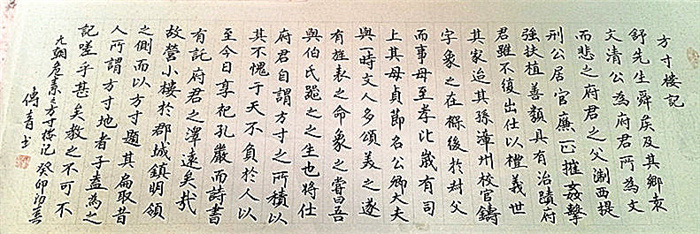 方寸楼记
舒先生舜矦及其鄉袁
文清公為府君所為文
而悲之府君之父澍西提
刑公居官廉一摧姦擊
強扶植善類具有治蹟府
君雖不復出仕以禮義世
其家迨其孫漳州校官鑄
字象之在襁後於對父
而事母至孝比嵗有司
上其母貞節名公鄉大夫
與一時文人多頌美之遂
有旌表之命象之嘗曰吾
與伯氏之之生也將仕
府君自謂方寸之所積以
其不愧于天不負於人以
至今日享祀孔嚴而詩書
有託府君之澤遠矣哉
故營小樓於郡城鎮明領
之側而以方寸題其扁取昔
人所謂方寸地者子盍為之
記嗟乎甚矣教之不可不
元朝危素之方寸楼记 癸卯初春
傅青书